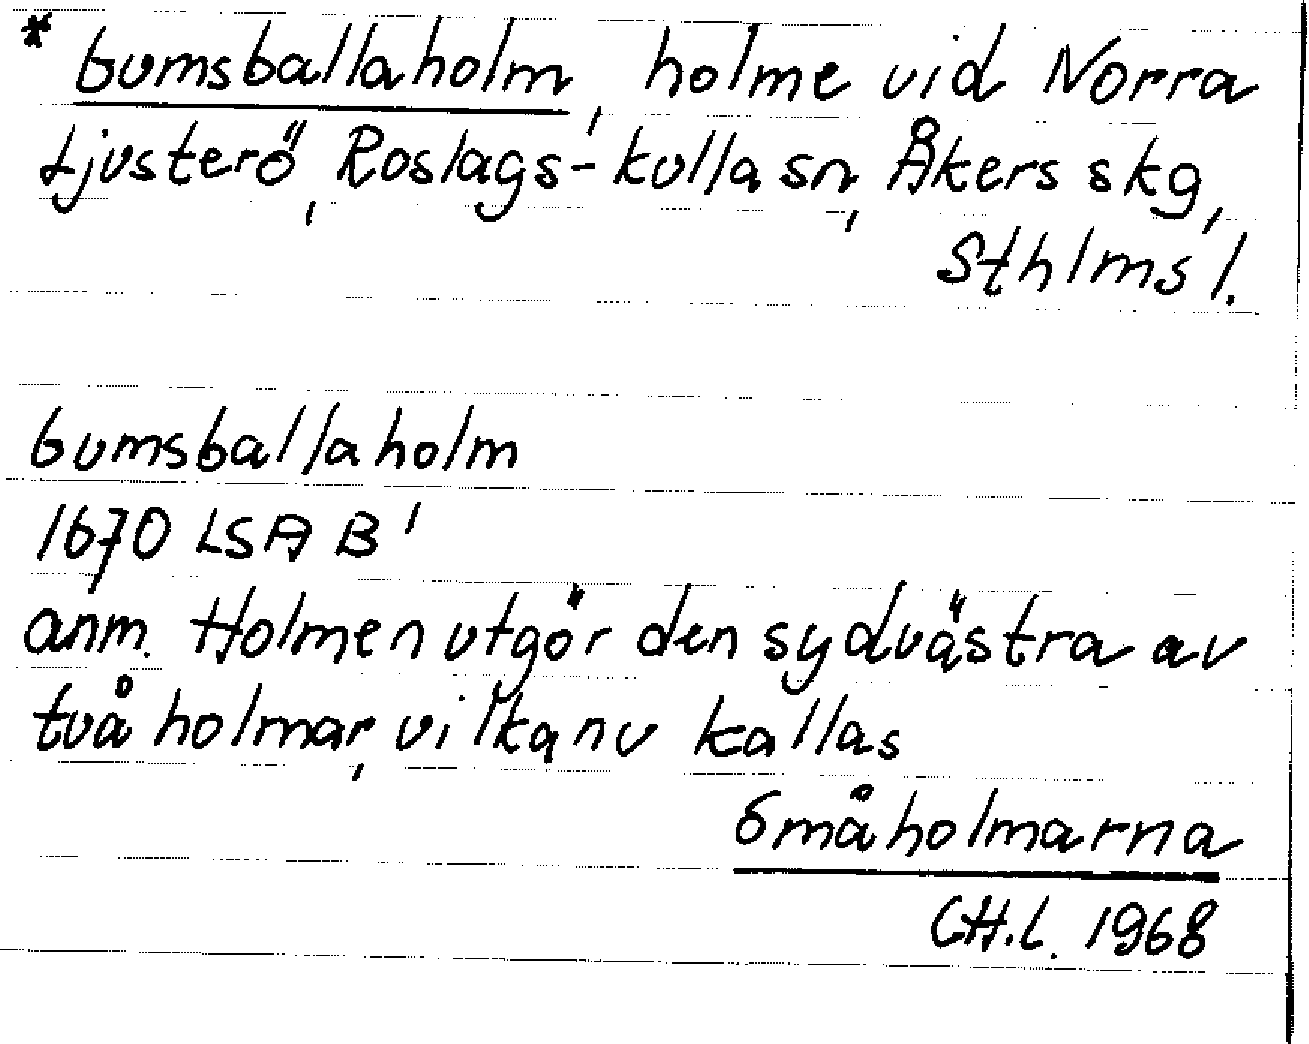 * Gumsballaholm, holme vid Norra
Ljusterö, Roslags-Kulla sn, Åkers skg,
Sthlms l.
Gumsballaholm
1670 LSA B 1
anm. Holmen utgör den sydvästra av
två holmar, vilka nu kallas
Småholmarna
CH.L. 1968